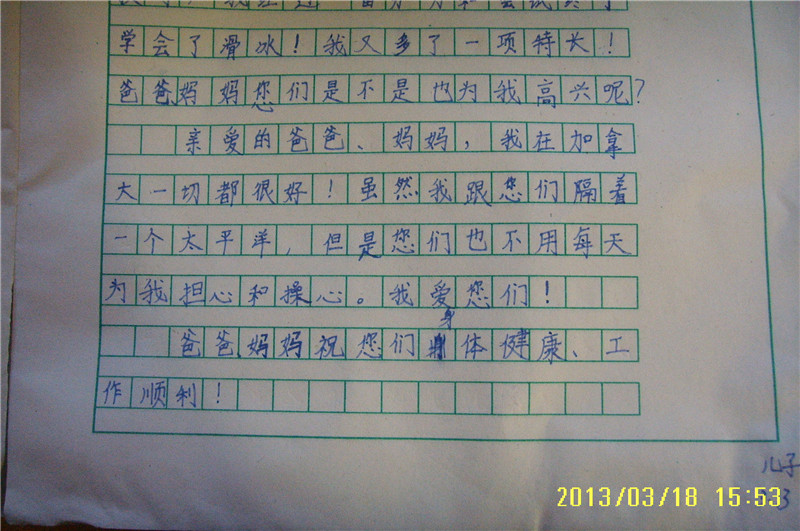 学会了滑冰！我又多了一项特长！
爸爸、妈妈您们是不是也为我高兴呢？
亲爱的爸爸、妈妈，我在加拿
大一切都很好！虽然我跟您们隔着
一个太平洋，但是您们也不用每天
为我担心和操心。我爱您们！
爸爸妈妈祝您们身体健康、工
作顺利！
儿子
2013/03/18 15:53